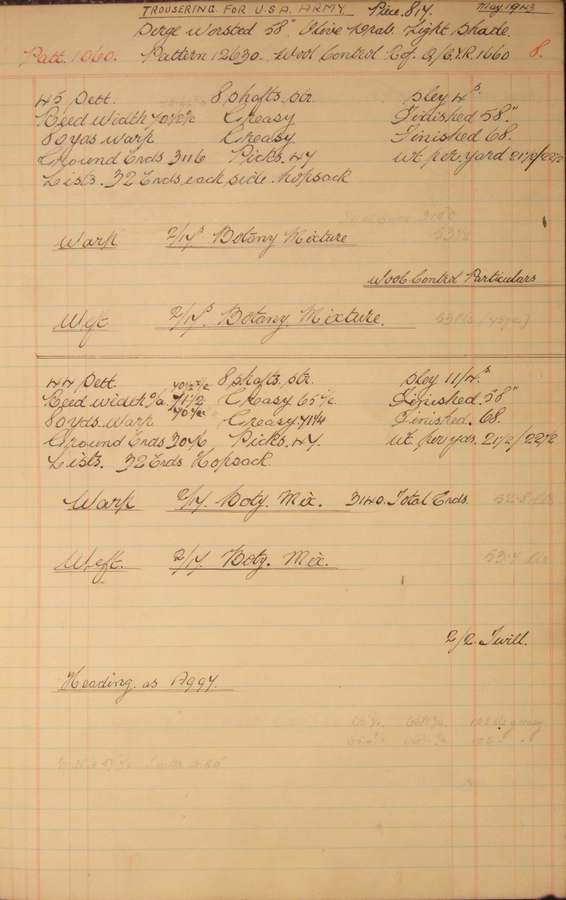 TROUSERING FOR U.S.A. ARMY Piece 817. May 1943
Serge Worsted 58". Olive Drab. Light Shade.
Patt. 1060. Pattern 12630. Wool Control Ref. Q/C.Y.R. 1660 8.
45 Sett. 8 shafts. str. Sley 4s
Reed Width 70½% Greasy Finished 58"
80 yds warp Greasy Finished 68.
Ground Ends 3116 Picks. 47 Wt per. yard 21½/22½
Lists. 32 Ends each side. hopsack
Warp 2/17s Botany Mixture
Wool Control Particulars
Weft 2/17s Botany Mixture.
44 Sett. 8 shafts. str. Sley 11/4s
Reed width 71½ Greasy 65% Finished 58"
80 yds. Warp Greasy. 71¼ Finished. 68.
Ground Ends 3076 Picks. 47. Wt. per yds. 21½/22½
Lists. 32 Ends Hopsack.
Warp 2/17. Boty. Mix. 3140. Total Ends.
Weft. 2/17. Boty. Mix.
2/2 Twill.
Heading. as A997.